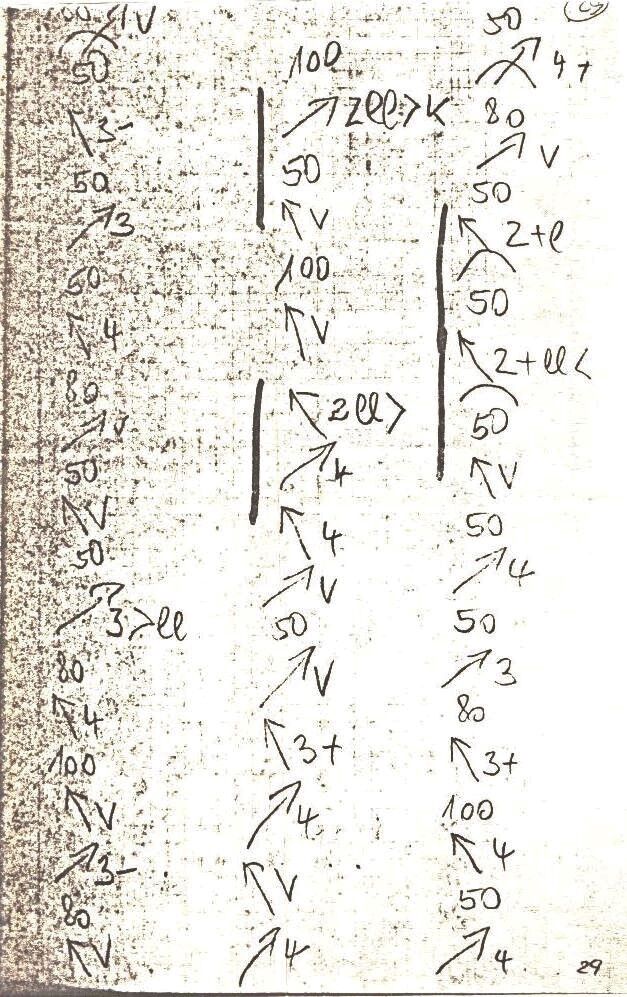 50
↖ 3-
50
↗ 3
50
↖ 4
80
↗ V
50
↖ V
50
↗ 3 > ll
80
↖ 4
100
↖ V
↗ 3-
80
↖ V
100
↗ 2ll > K
50
↖ V
100
↖ V
↖ 2ll >
↗ k
↖ 4
↗ V
50
↗ V
↖ 3+
↗ 4
↖ V
↗ 4
50
↗ 4+
80
↗ V
50
↖ 2+l
50
↖ 2+ll <
50
↖ V
50
↗ 4
50
↗ 3
80
↖ 3+
100
↖ 4
50
↗ 4
29